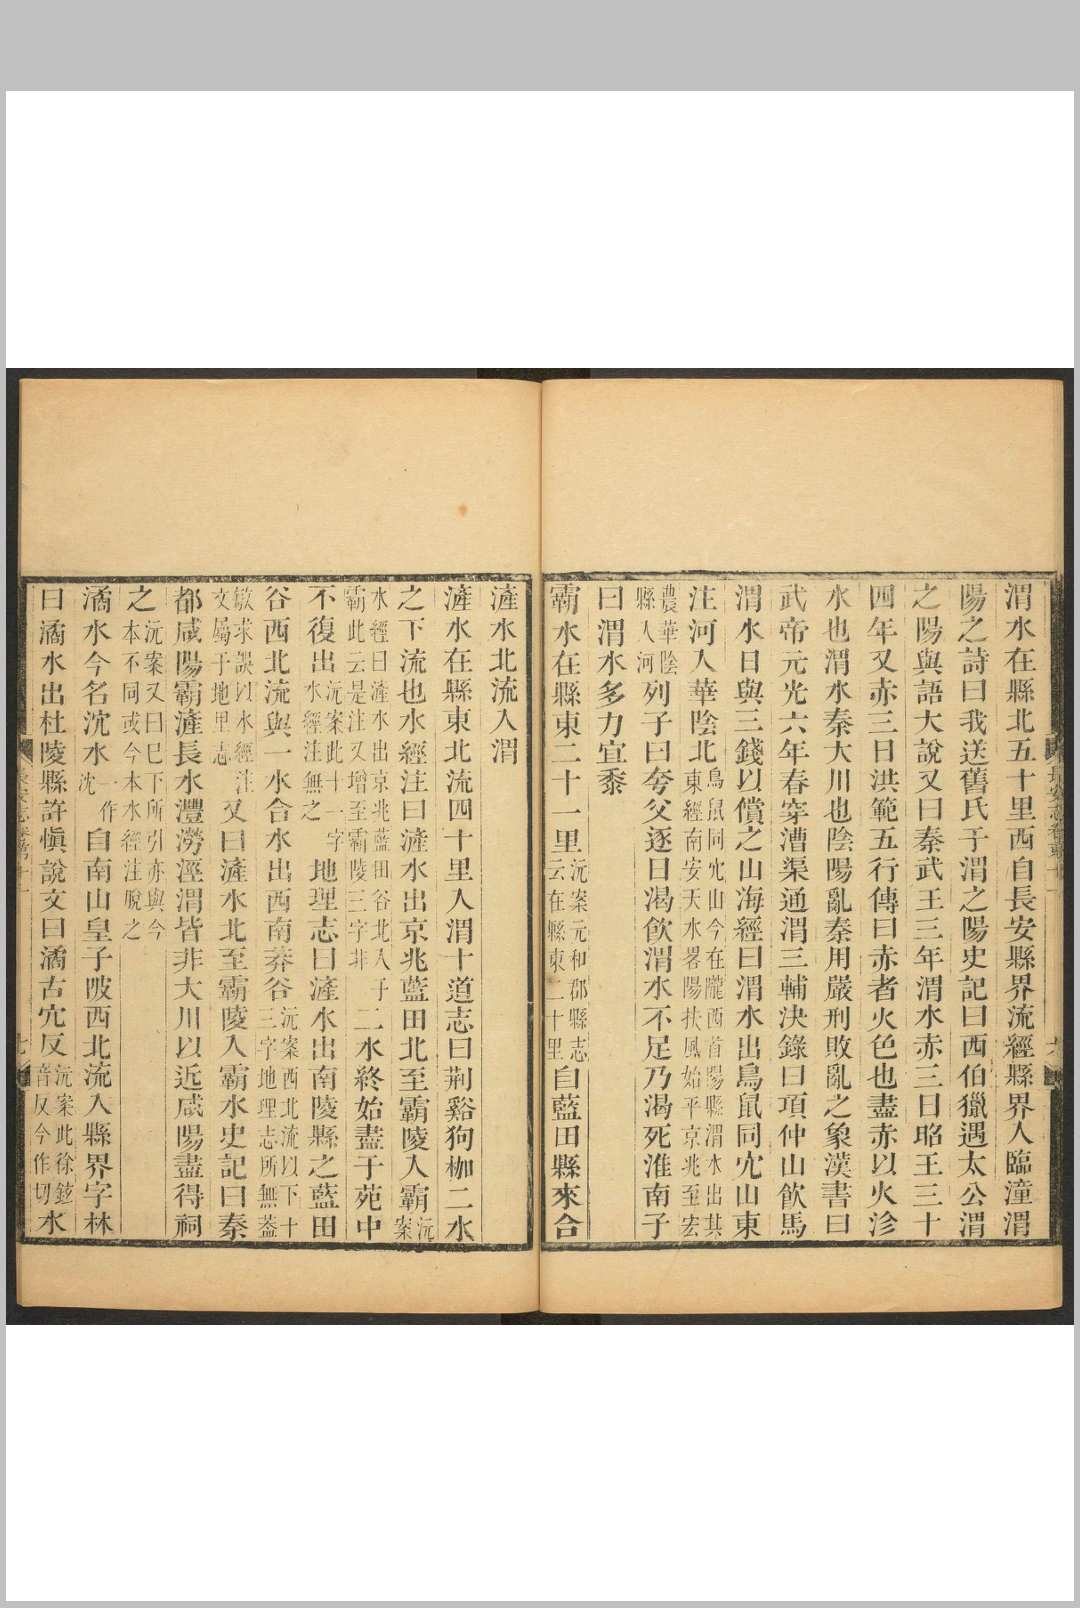 渭水在縣北五十里西自長安縣界流經縣界入臨潼渭
陽之詩曰我送舊氏于渭之陽史記曰西伯獵遇太公渭
之陽與語大說又曰秦武王三年渭水赤三日昭王三十
四年又赤三日洪範五行傳曰赤者火色也盡赤以火沴
水也渭水秦大川也陰陽亂秦用嚴刑敗亂之象漢書曰
武帝元光六年春穿漕渠通渭三輔決錄曰項仲山飲馬
渭水日與三錢以償之山海經曰渭水出鳥鼠同穴山東
注河入華陰北鳥鼠同穴山今在隴西首陽縣渭水出其
東經南安天水畧陽扶風始平京兆至宏
農華陰
縣入河列子曰夸父逐日渴飲渭水不足乃渴死淮南子
曰渭水多力宜黍
霸水在縣東二十一里沅案元和郡縣志
云在縣東二十里自藍田縣來合
滻水北流入渭
滻水在縣東北流四十里入渭十道志曰荆谿狗枷二水
之下流也水經注曰滻水出京兆藍田北至霸陵入霸沅
案
水經曰滻水出京兆藍田谷北入于
霸此云是注又增至霸陵三字非二水終始盡于苑中
不復出沅案此十一字
水經注無之地理志曰滻水出南陵縣之藍田
谷西北流與一水合水出西南莽谷沅案西北流以下十
三字地理志所無葢
敏求誤以水經注
文屬于地里志又曰滻水北至霸陵入霸水史記曰秦
都咸陽霸滻長水灃澇涇渭皆非大川以近咸陽盡得祠
之沅案又曰已下所引亦與今
本不同或今本水經注脫之
潏水今名沈水一作
沈自南山皇子陂西北流入縣界字林
曰潏水出杜陵縣許愼說文曰潏古穴反沅案此徐鉉
音反今作切水